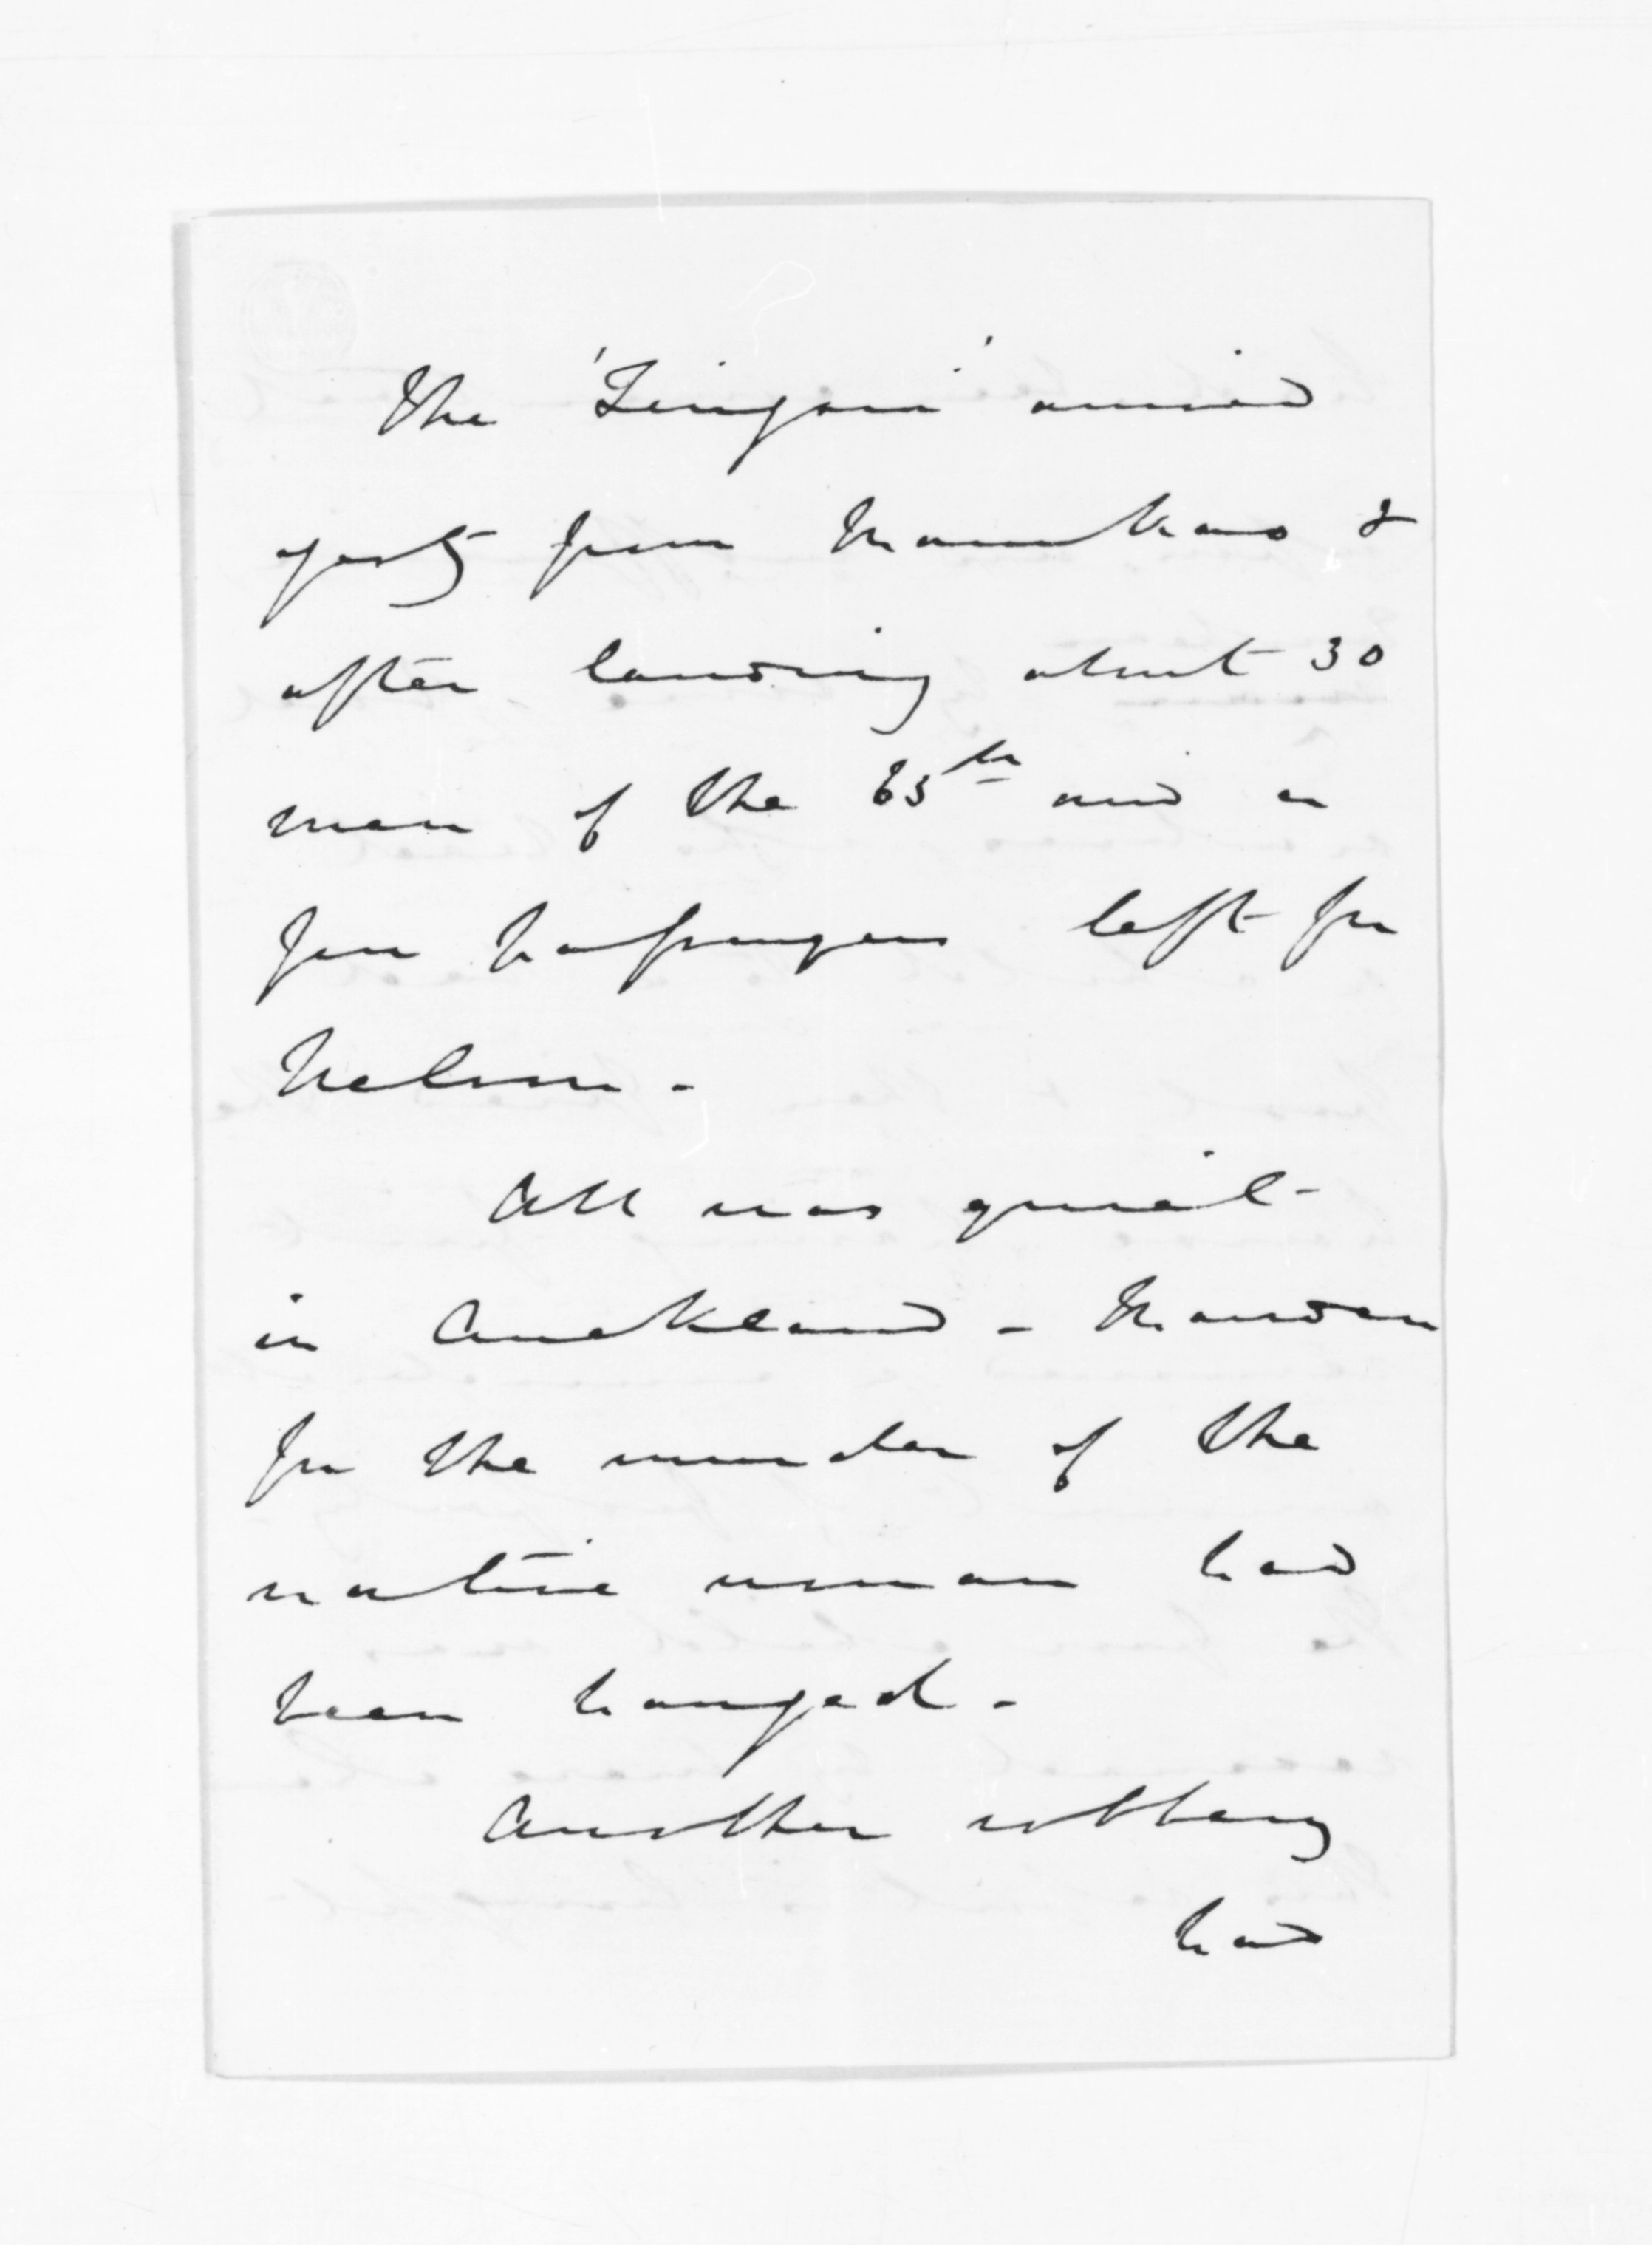 The 'Zingari' arrived
yesty from Manukau &
after landing about 30
men of the 65th and a
few Passengers left for
Nelson -
All was quiet
in Auckland - Marsden
for the murder of the
native woman had
been hanged -
Another robbery
had